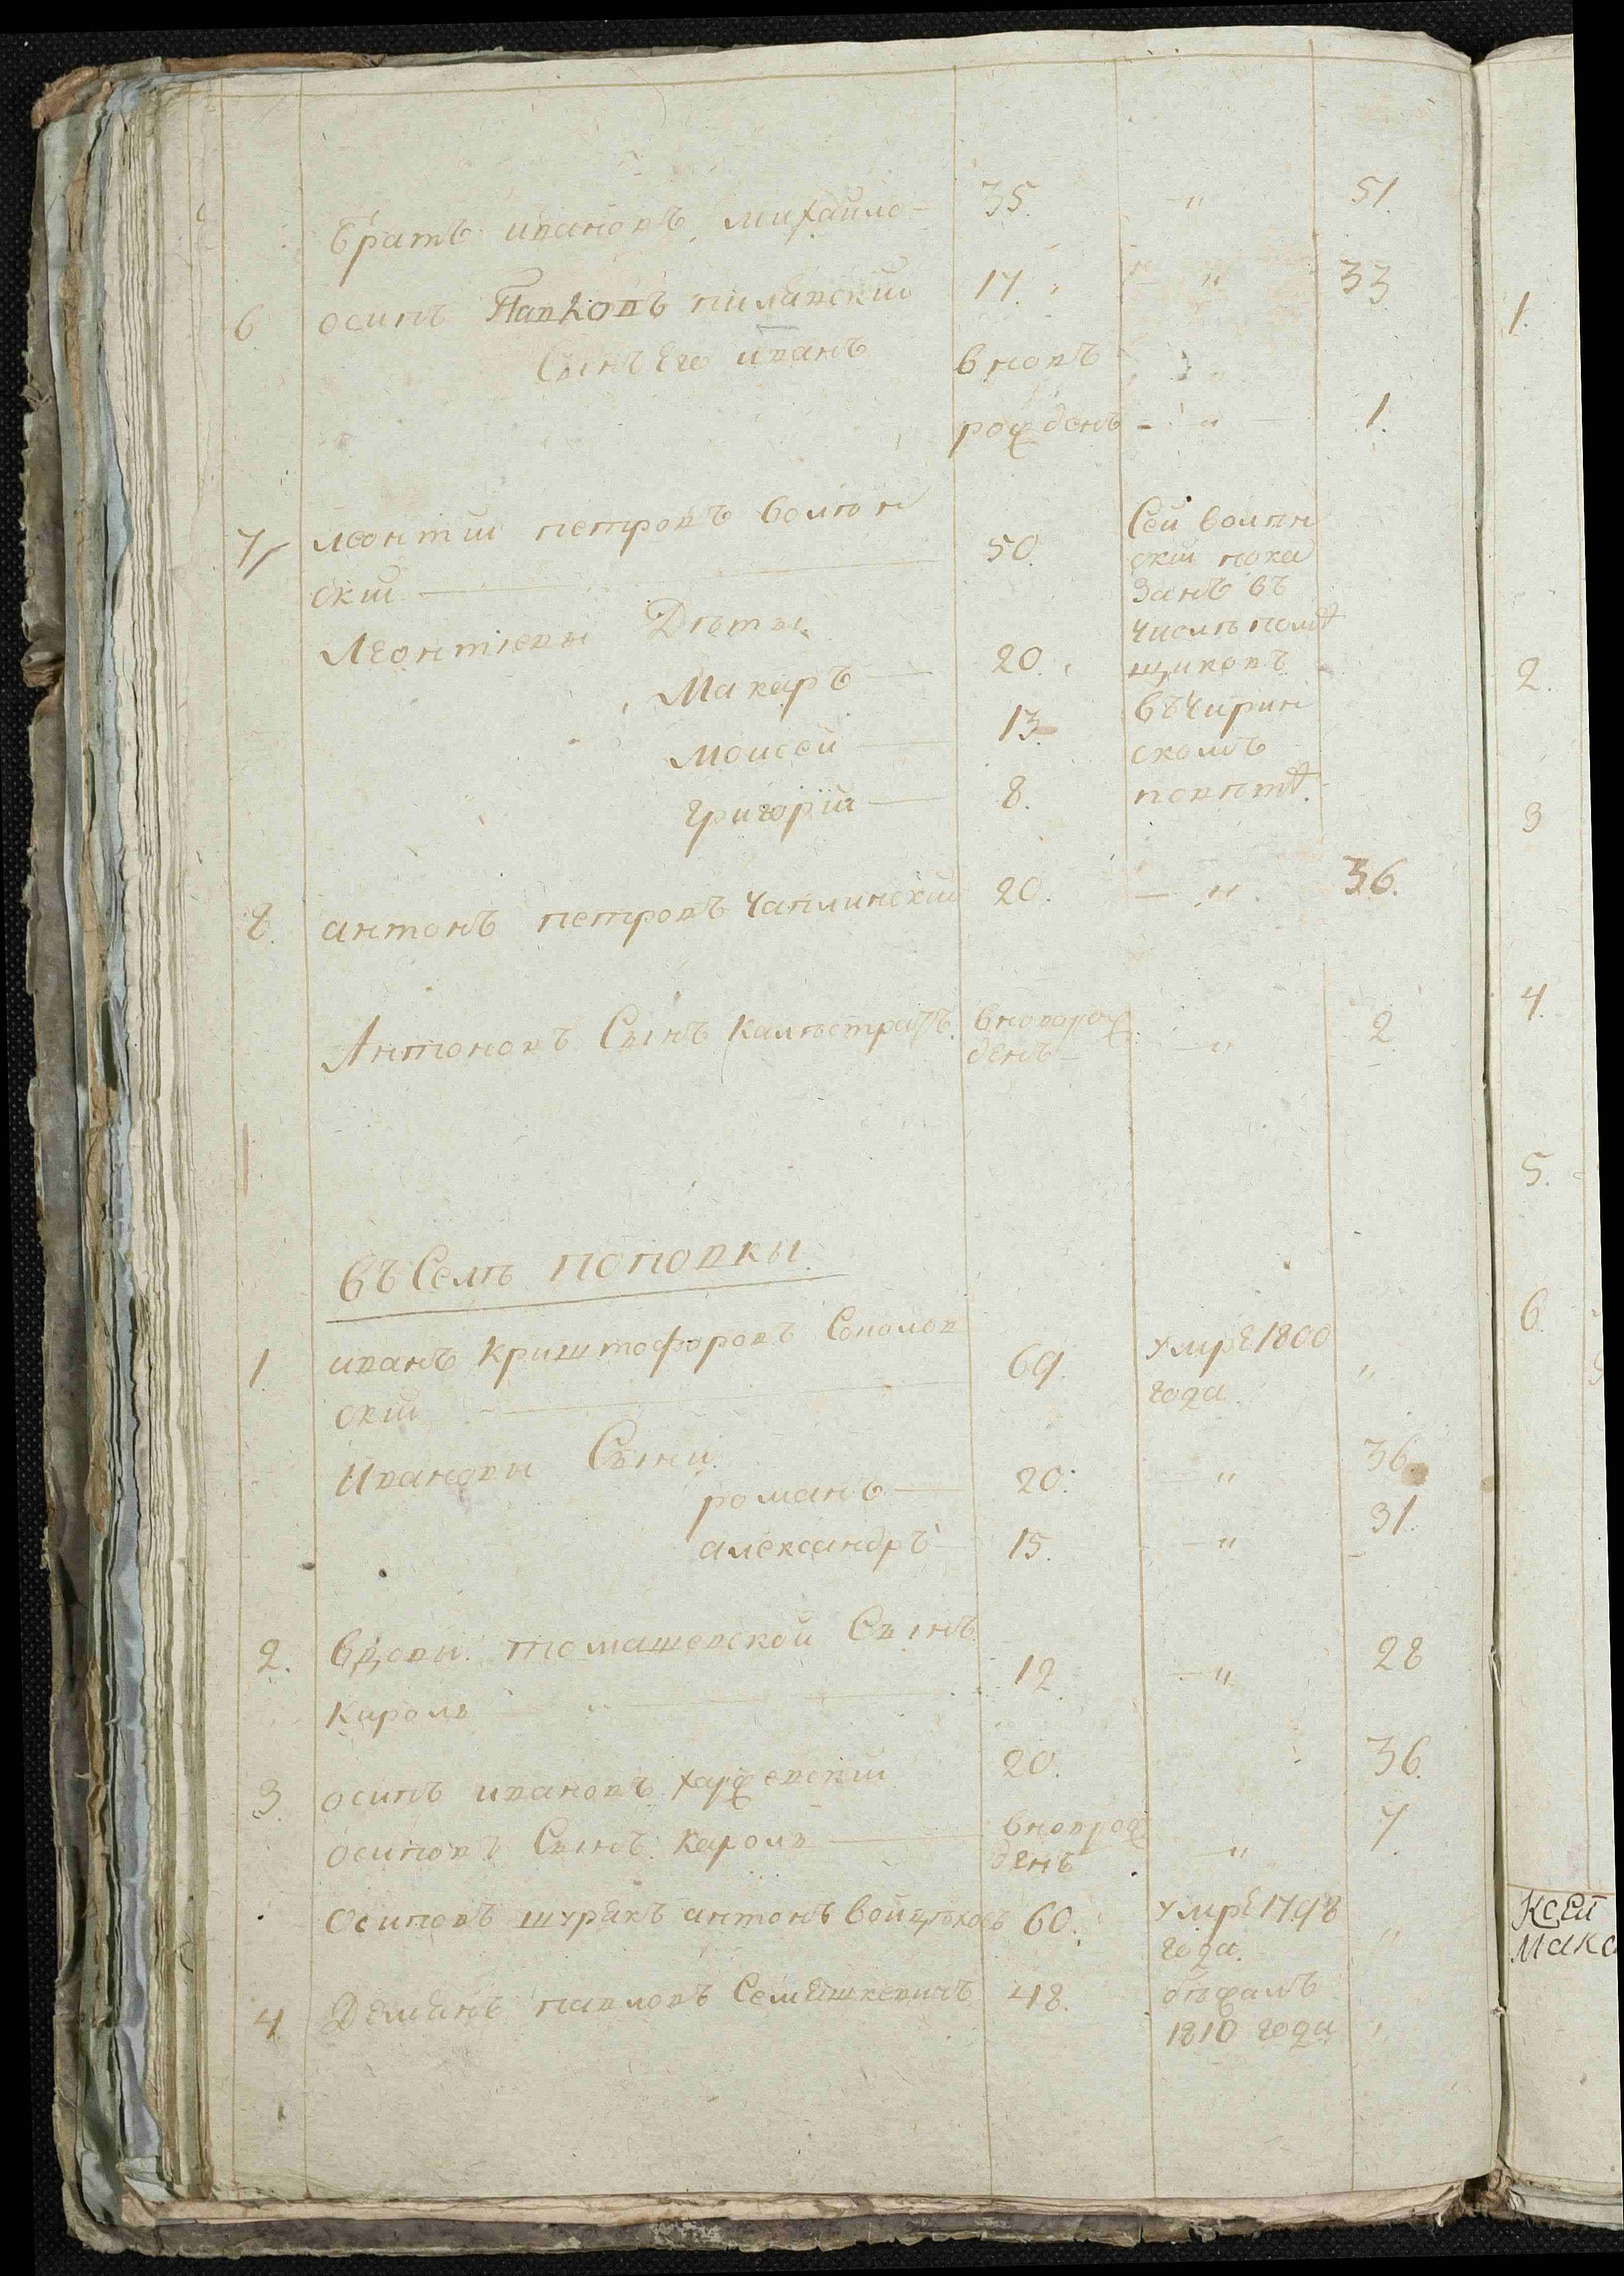 братъ ивановъ михайло — 35. — " 51.
6. осипъ Павловъ пилявский 17. — " 33
Сынъ Его иванъ вновъ
рожденъ — " — 1.
7 леонтий петровъ волын
ский — 50.
Сей волын
ский пока
занъ въ
числѣ помѣ
щиковъ
въ Чигрин
скомъ
повѣтѣ.
Леонтіевы Дѣты
Макаръ — 20.
Моисей — 13.
Григорій — 8.
8. антонъ петровъ Чаплинский 20. — " 36.
Антоновъ Сынъ Калѣстратъ. вноворож
денъ — " 2
въ Селѣ поповкы
1. иванъ Криштофоровъ Соколов
ский — 69. умрЕ 1800
года. "
Ивановы Сыни.
романъ — 20. — " 36.
александръ 15. — " 31.
2. вдовы томашевской Сынъ
Кароль — 12. — " 28
3. осипъ ивановъ харжевский 20. 36.
осиповъ Сынъ Кароль — вноврож
денъ — " 7.
Осиповъ шурякъ антонъ 60. умрЕ 1798
года. "
4. Демянъ павловъ Семяшкевичъ 48. бѣжалъ
1810 года "
1.
2.
3
4.
5.
6.
Ксей
Мако